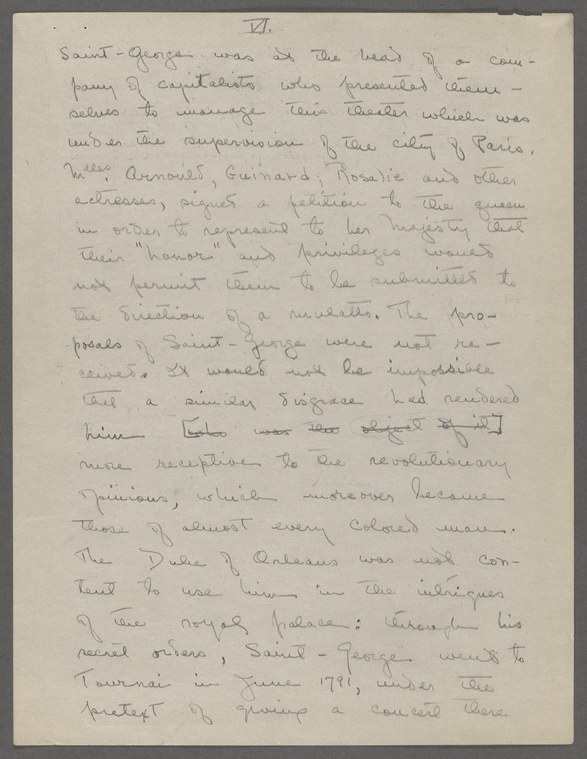 VI.
Saint-George was at the head of a com-
pany of capitalists who presented them-
selves to manage this theater which was
under the supervision of the city of Paris.
Mlles. Arnould, Guinard, Rosalie and other
actresses, signed a petition to the queen
in order to represent to her Majesty that
their "honor" and privileges would
not permit them to be submitted to
the direction of a mulatto. The pro-
posals of Saint-George were not re-
ceived. It would not be impossible
that a similar disgrace had rendered
him [who was the object of it]
more receptive to the revolutionary
opinions, which moreover became
those of almost every colored man.
The Duke of Orleans was not con-
tent to use him in the intrigues
of the royal palace: through his
secret orders, Saint-George went to
Tournai in June 1791, under the
pretext of giving a concert there